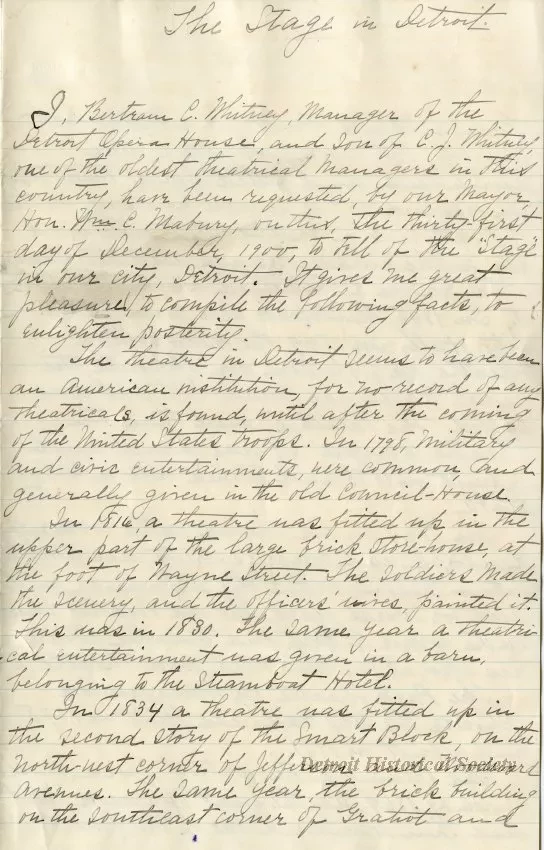 The Stage in Detroit.
I, Bertram C. Whitney, Manager of the
Detroit Opera House, and son of C. J. Whitney,
one of the oldest theatrical managers in this
country, have been requested, by our Mayor,
Hon. Wm. C. Mabury, on this, the thirty-first
day of December, 1900, to tell of the "Stage"
in our city, Detroit. It gives me great
pleasure, to compile the following facts, to
enlighten posterity.
The theatre in Detroit seems to have been
an American institution, for no record of any
theatricals, is found, until after the coming
of the United States troops. In 1798, military
and civic entertainments, were common, and
generally given in the old Council-House.
In 1816, a theatre was fitted up in the
upper part of the large brick store-house, at
the foot of Wayne Street. The soldiers made
the scenery, and the officers' wives, painted it.
This was in 1830. The same year a theatri-
cal entertainment was given in a barn,
belonging to the Steamboat Hotel.
In 1834 a theatre was fitted up in
the second story of the Smart Block, on the
north-west corner of Jefferson and Woodward
Detroit Historical Society
Avenues. The same year, the brick building
on the southeast corner of Gratiot and